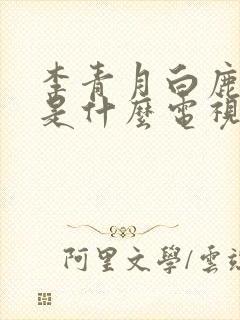 李青月白鹿
是什麼電視
阿里文學/雲